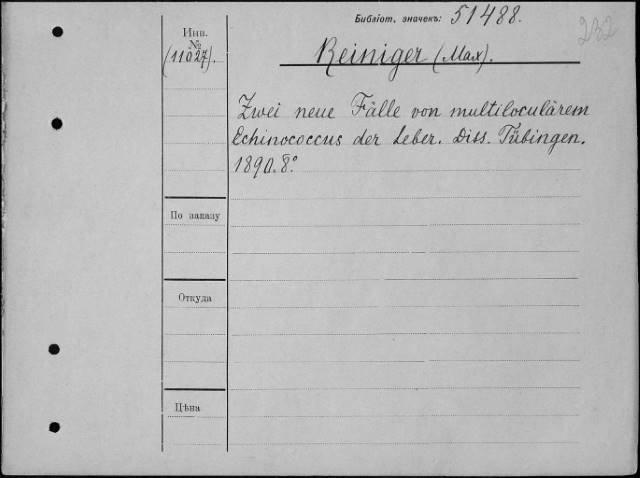 Библіот. значекъ: 51488.
232
Инв.
№
(11027).
Reiniger (Max).
Zwei neue Fälle von multiloculärem
Echinococcus der Leber. Diss. Tübingen.
1890. 8°.
По заказу
Откуда
Цѣна